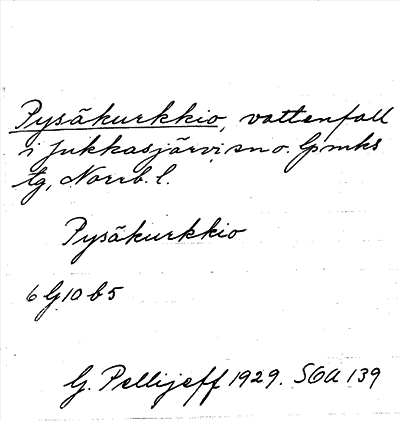 Pysäkurkkio, vattenfall
i Jukkasjärvi sn o. lpmks
tg, Norrb. l.
Pysäkurkkio
6 G 10 b 5
G. Pellijeff 1929. SOA 139